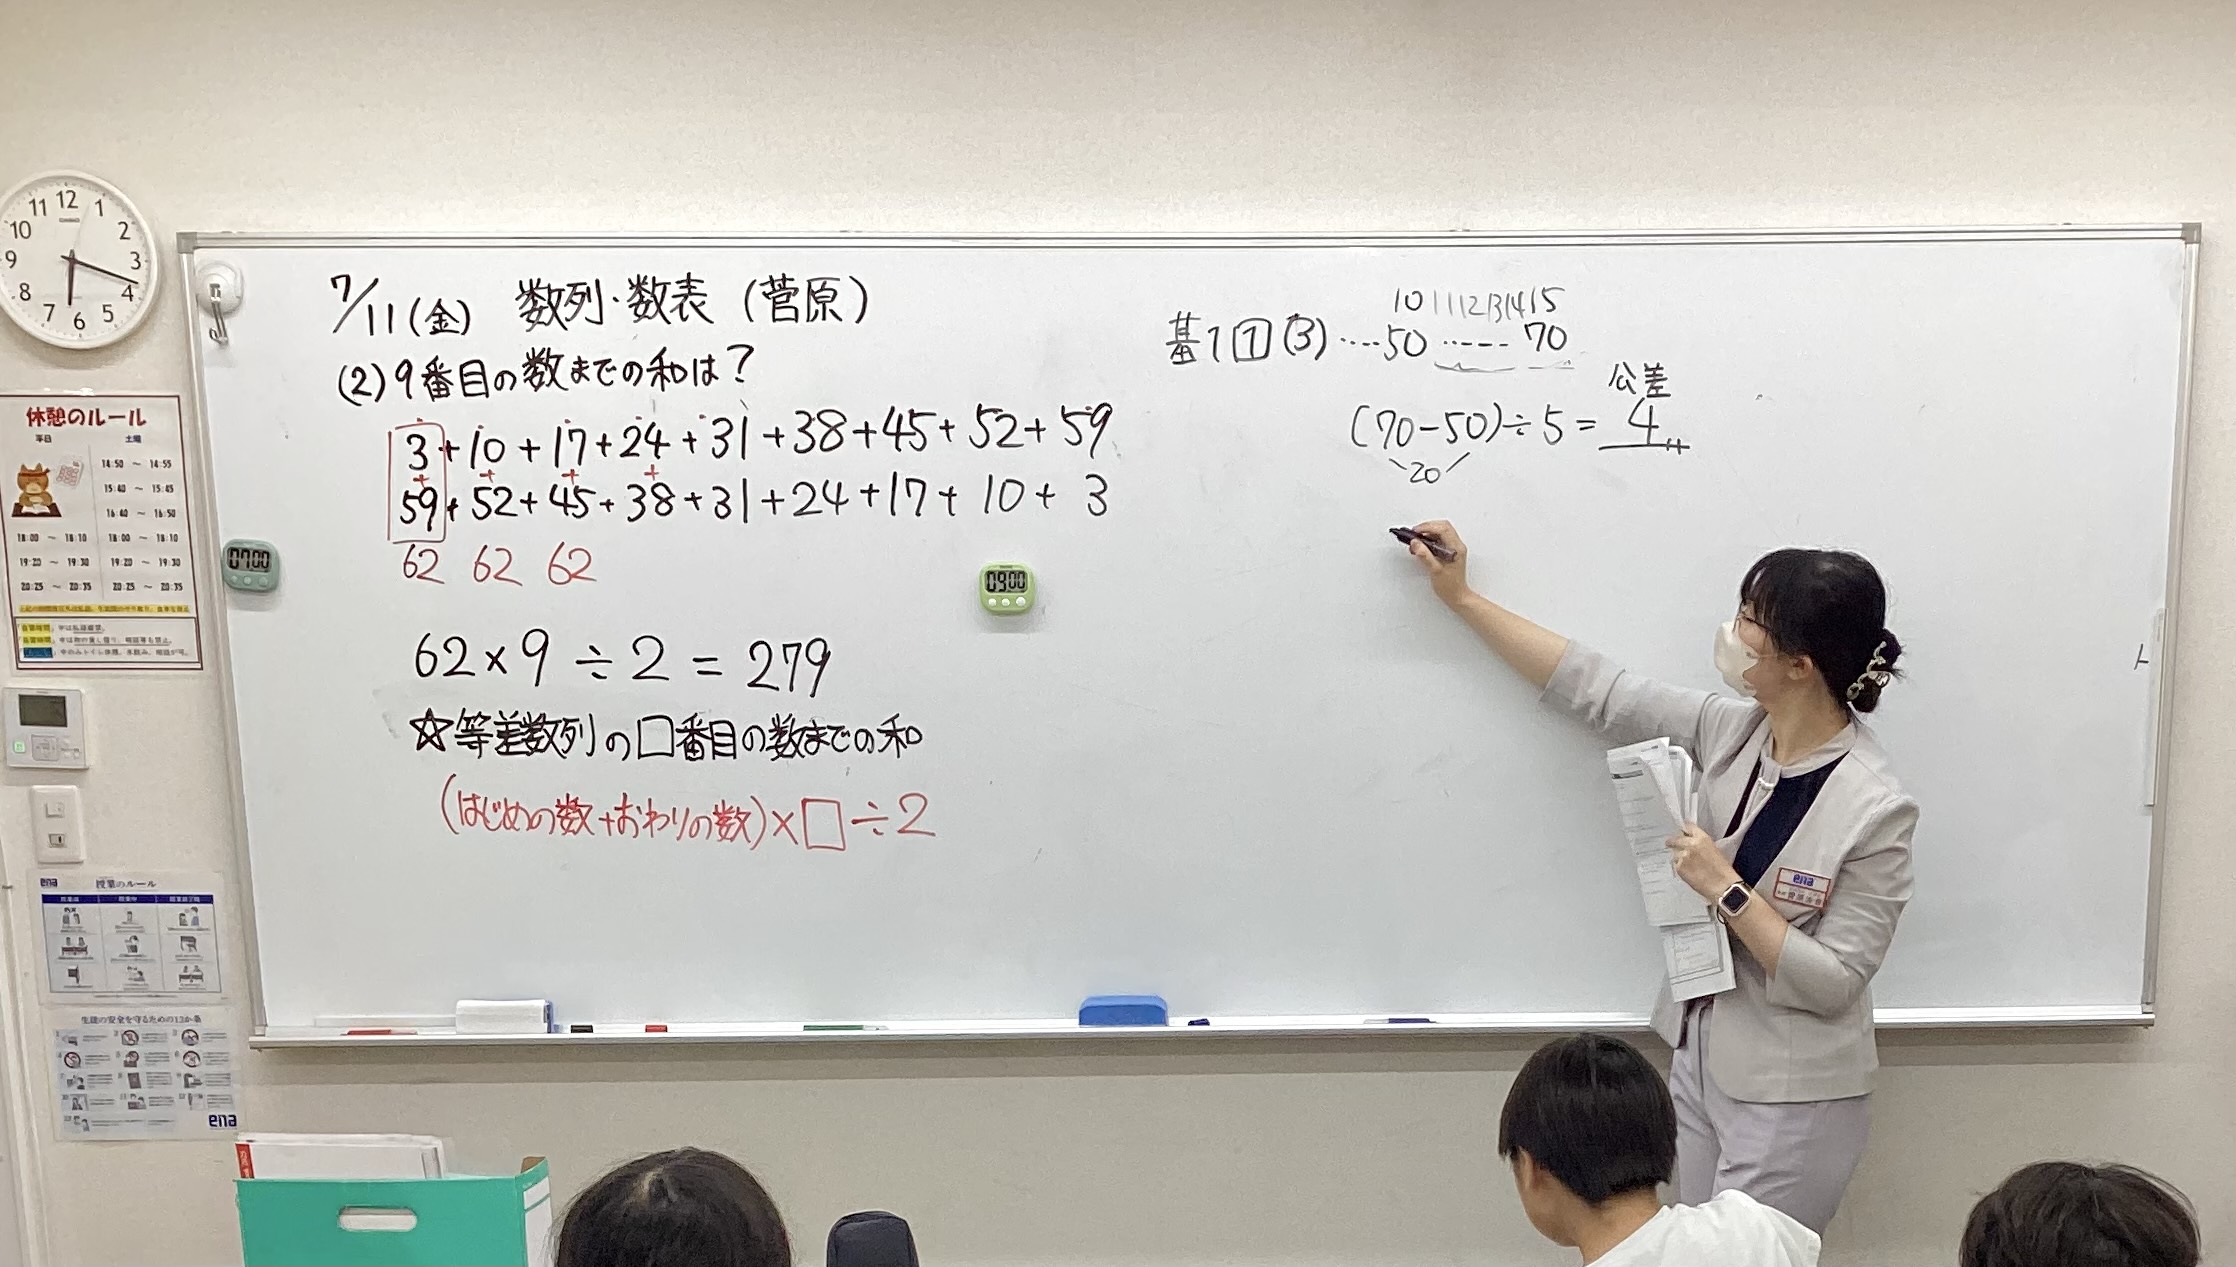 7/11(金) 数列・数表(菅原)
(2)9番目の数までの和は?
3+10+17+24+31+38+45+52+59
59+52+45+38+31+24+17+10+3
62 62 62
62×9÷2=279
☆等差数列の□番目の数までの和
(はじめの数+おわりの数)×□÷2
10 11 12 13 14 15
基1 1 (3) ‥‥50 ‥‥‥ 70
公差
(70-50)÷5=4
20
12 1 2 3 4 5 6 7 8 9 10 11
CASIO
休憩のルール
平日 土曜
14:50 ~ 14:55
15:40 ~ 15:45
16:40 ~ 16:50
18:00 ~ 18:10 18:00 ~ 18:10
19:20 ~ 19:30 19:20 ~ 19:30
20:25 ~ 20:35 20:25 ~ 20:35
07:00
09:00
ena 授業のルール
生徒の安全を守るための13か条
ena
ena